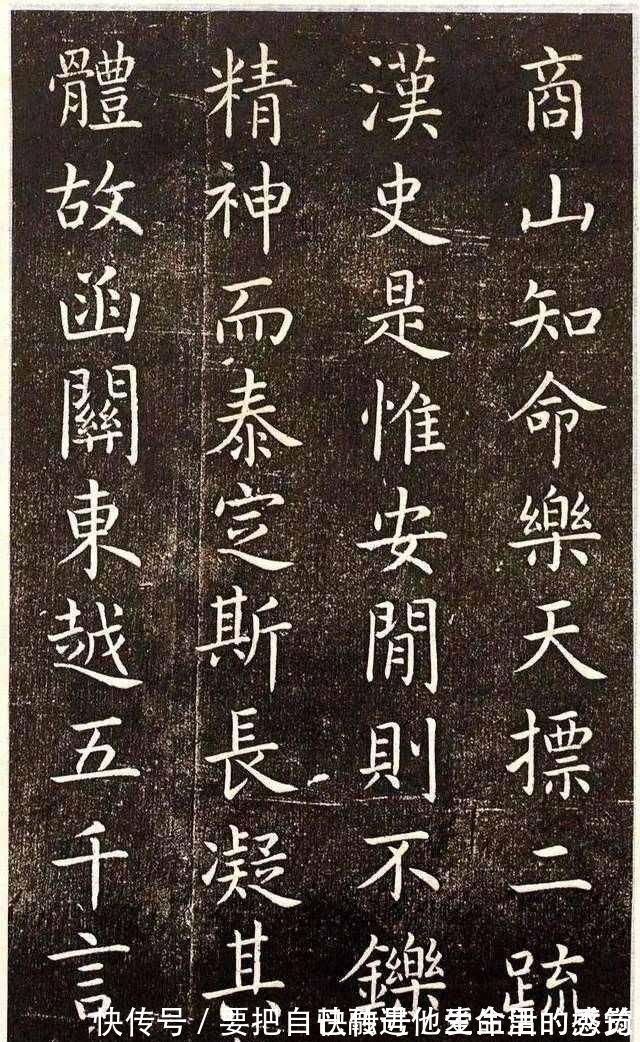 商山知命樂天摽二疏
漢史是惟安閒則不鑠
精神而泰定斯長凝其
體故函關東越五千言
快传号/要把自己融进他生命里的感觉